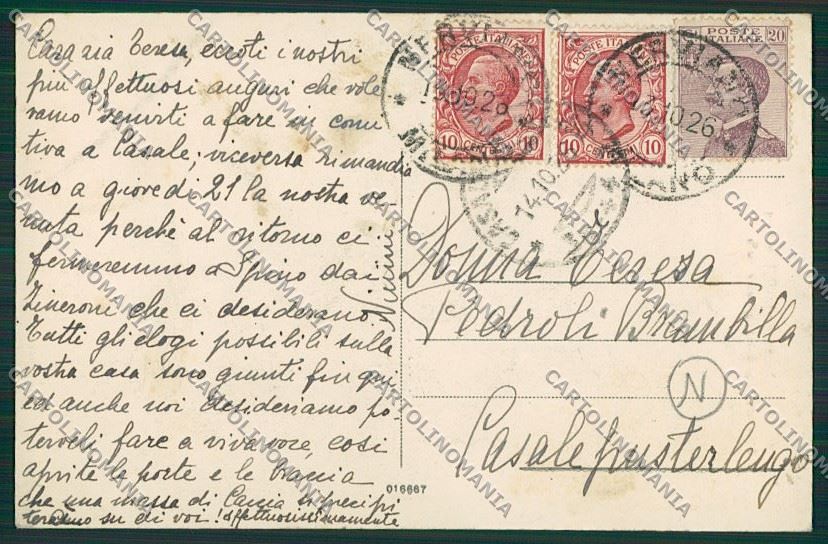 Cara zia Teresa, eccoti i nostri
più affettuosi auguri che vole
vamo venirti a fare in comi
tiva a Casale; viceversa rimandia
mo a giovedì 21 la nostra ve
nuta perchè al ritorno ci
fermeremo a Spino dai
Zineroni che ci desiderano
Tutti gli elogi possibili sulla
vostra casa sono giunti fin qui
ed anche noi desideriamo po
terveli fare a viva voce, così
aprite le porte e le braccia
che una massa di Caccia si precipi
teranno su di voi! affettuosissimamente
POSTE ITALIANE 20
10 CENT. 10
POSTE ITALIANE
10 CENT. 10
POSTE ITALIANE 20
14.10.26
Donna Teresa
Pedroli Brambilla
N
Casalpusterlengo
016667
CARTOLINOMANIA